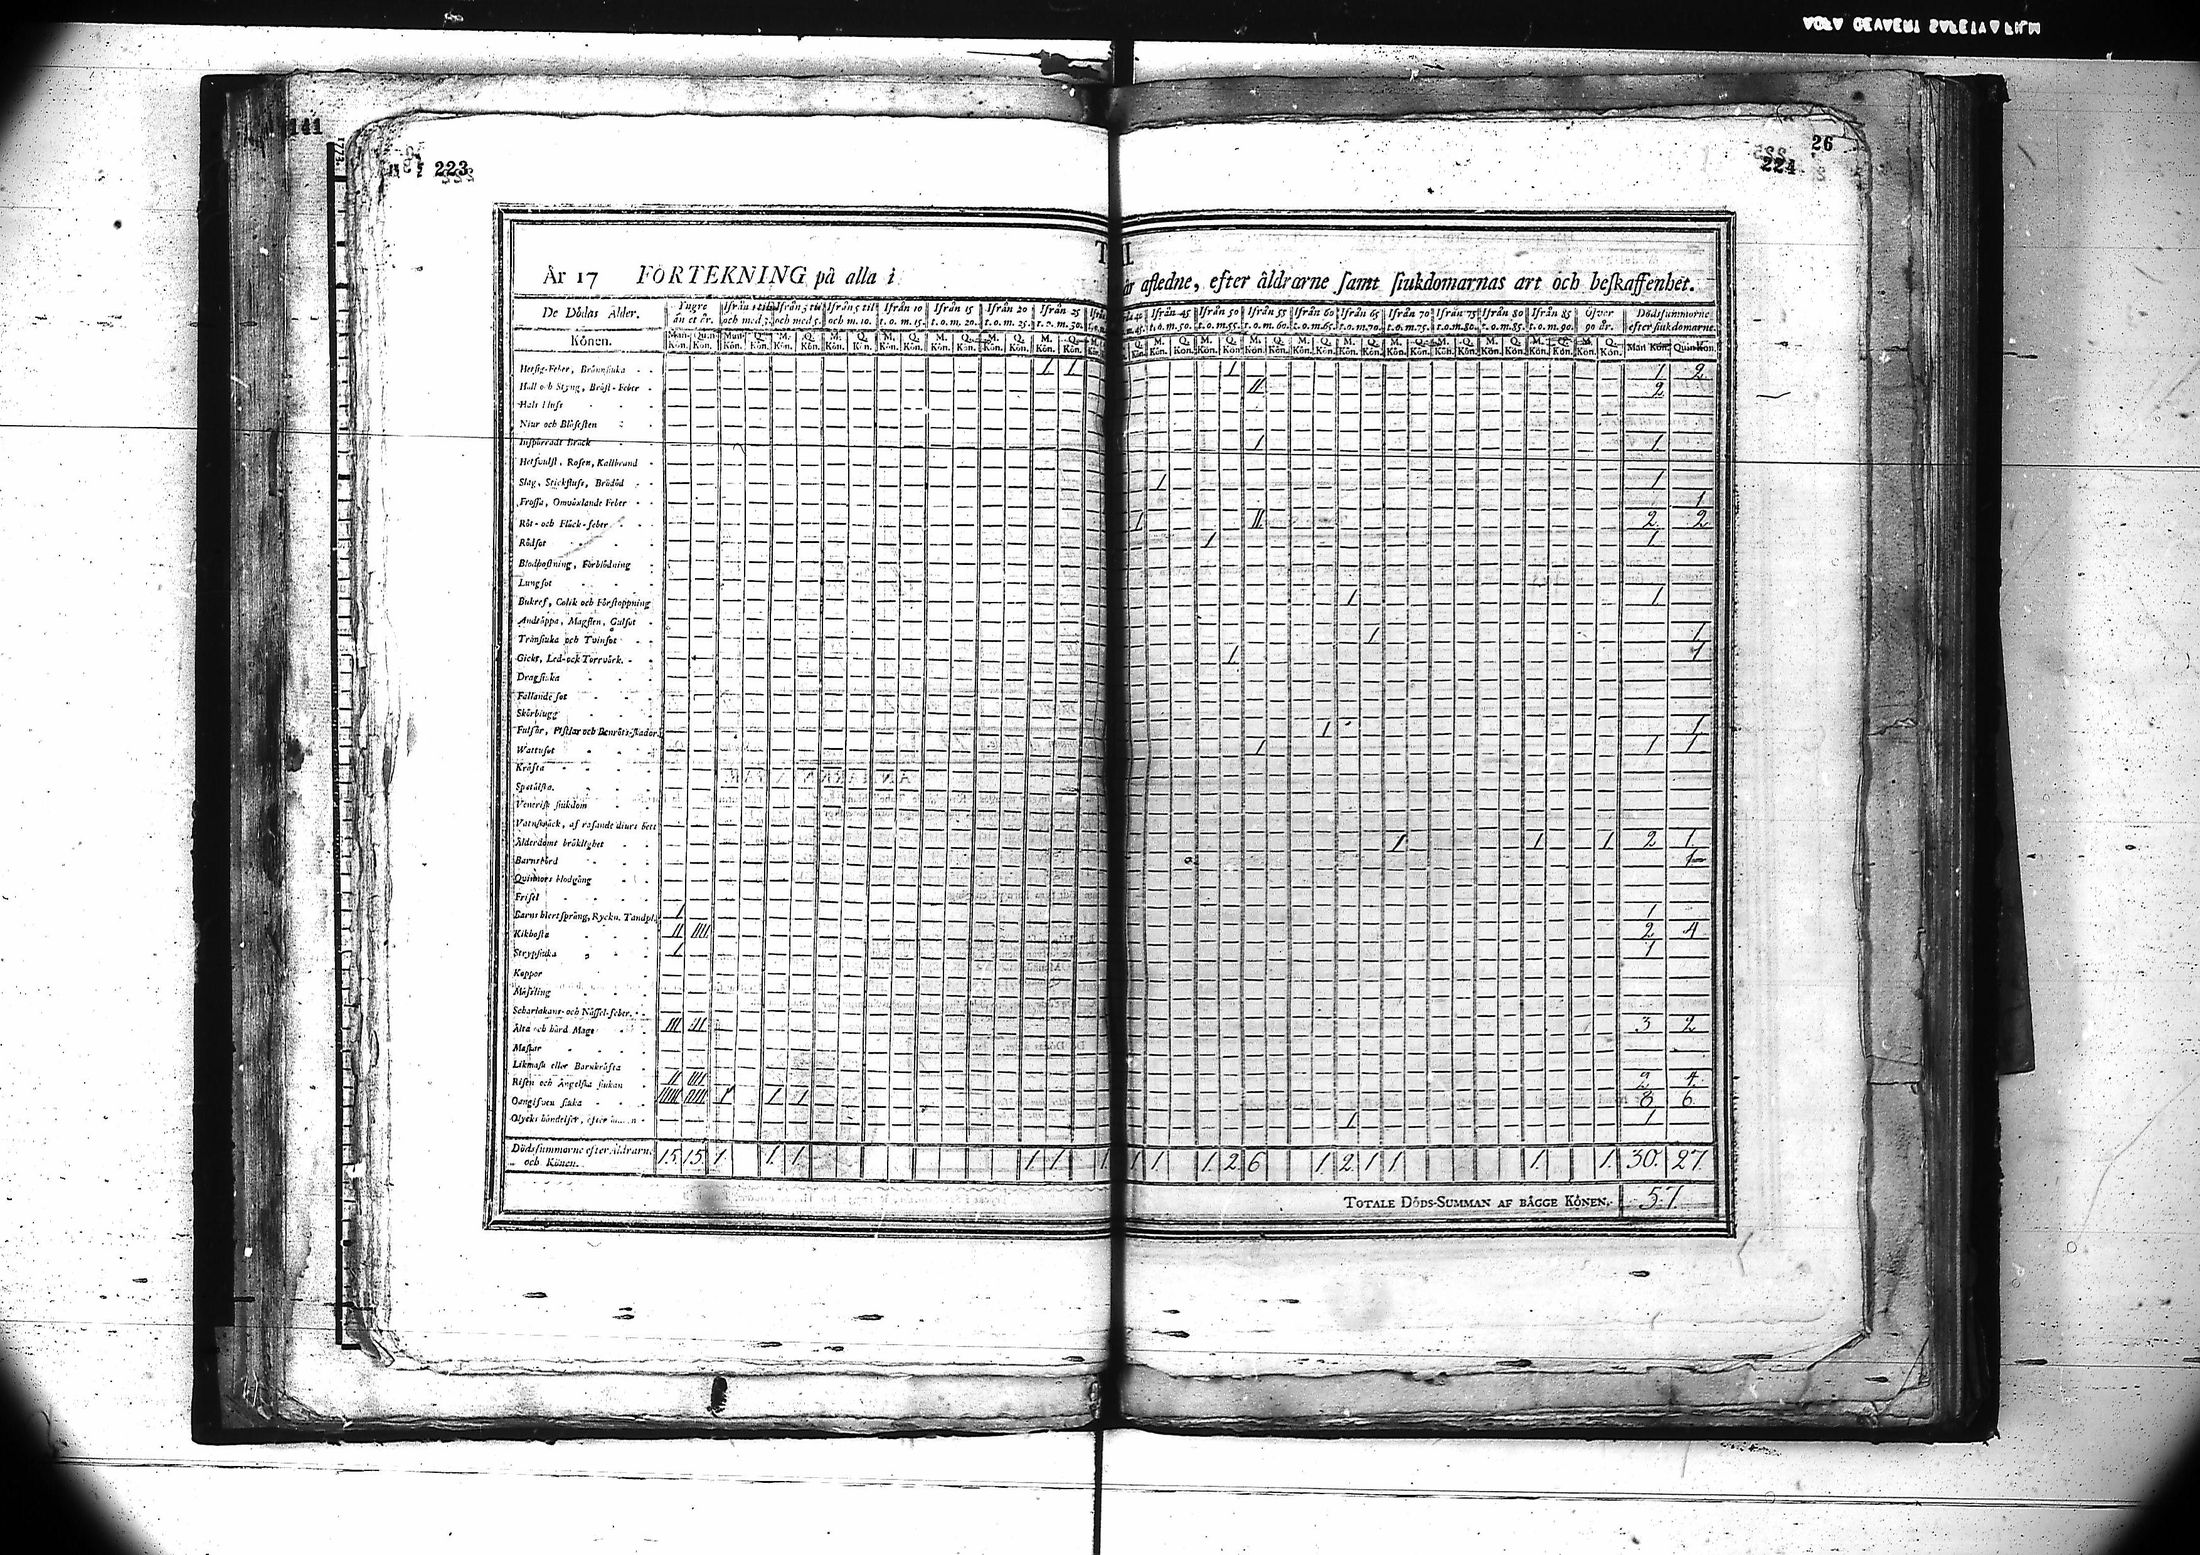 141
1773.
223
26
224
År 17 FÖRTEKNING på alla i
år aflledne, efter åldrarne samt siukdomarnas art och beskaffenhet.
De Dödas Ålder.
Yngre än et år. Ifrån 1 til och med 3. Ifrån 3 til och med 5. Ifrån 5 til och m. 10. Ifrån 10 t. o. m. 15. Ifrån 15 t. o. m. 20. Ifrån 20 t. o. m. 25. Ifrån 25 t. o. m. 30.
Ifrån 45 t. o. m. 50. Ifrån 50 t. o. m. 55. Ifrån 55 t. o. m. 60. Ifrån 60 t. o. m. 65. Ifrån 65 t. o. m. 70. Ifrån 70 t. o. m. 75. Ifrån 75 t. o. m. 80. Ifrån 80 t. o. m. 85. Ifrån 85 t. o. m. 90. Öfver 90 år. Dödssummorne efter siukdomarne.
Könen.
Man Kön. Quin Kön.
Hetsig-Feber, Brännsiuka 1 1 1 1 2
Håll och Styng, Bröst-Feber II 2
Hals fluss
Niur och Blåsesten
Inspärradt Bråck 1 1
Hetsvulst, Rosen, Kallbrand
Slag, Stickfluss, Brådöd 1 1
Frossa, Omväxlande Feber 1
Röt- och Fläck-feber 1 II 2 2
Rödsot 1 1
Blodhostning, Förblödning
Lungsot
Bukref, Colik och Förstoppning 1 1
Andtäppa, Magsten, Gulsot
Trånsiuka och Tvinsot 1 1
Gickt, Led- och Torrvärk. 1 1
Dragsiuka
Fallande sot
Skörbiugg
Fulsår, Fistlar och Benröts-skador 1 1
Wattusot 1 1 1
Kräfta
Spetälska.
Venerisk siukdom
Vatnskräck, af rasande diurs bett
Ålderdoms bräklighet 1 1 1 2 1
Barnsbörd 1
Quinnors blodgång
Frisel
Barns hiertsprång, Ryckn. Tandpl. 1 1
Kikhosta II IIII 2 4
Strypsiuka 1 1
Koppor
Mässling
Scharlakans- och Nässel-feber.
Älta och hård Mage III II 3 2
Maskar
Likmask eller Barnkräfta
Risen och Ängelska siukan II IIII 2 4
Oangifven siuka 1 1 1 8 6
Olycks händelser, 1 1
Dödssummorne efter Åldrarne och Könen. 15 15 1 1 1 1 1 1 1 1 1 2 6 1 2 1 1 1 1 30. 27
TOTALE DÖDS-SUMMAN AF BÄGGE KÖNEN. 57.